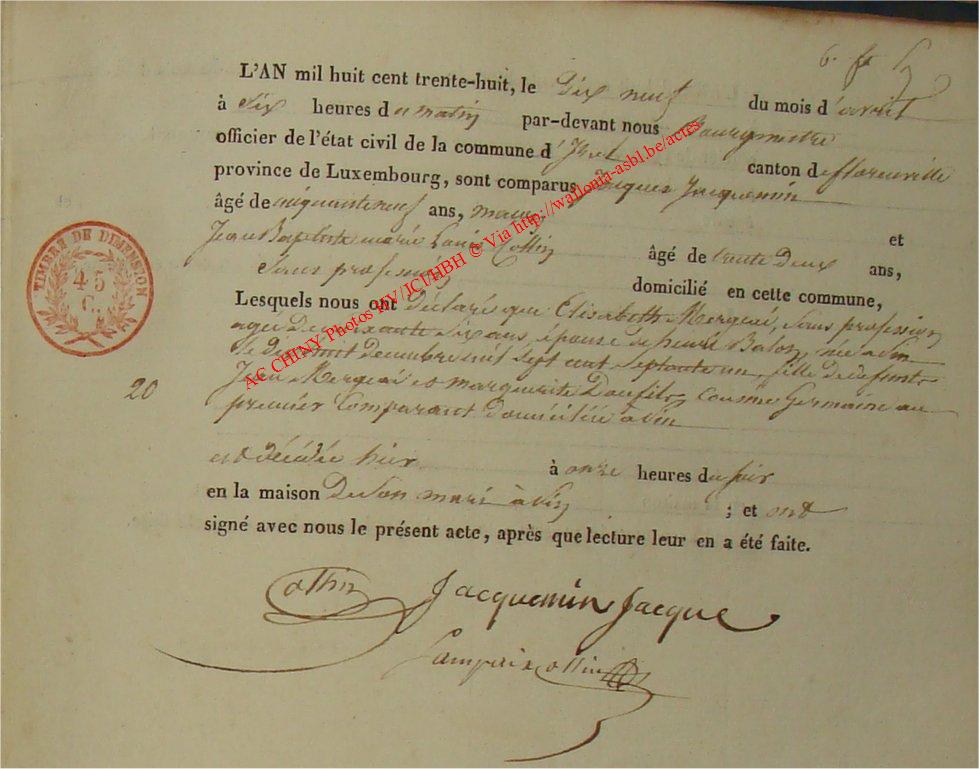 L'AN mil huit cent trente-huit, le dix neuf du mois d'avril
à six heures du matin par-devant nous Bourgmestre
officier de l'état civil de la commune d'Izel canton de florenville
province de Luxembourg, sont comparus Jacques Jacquemin
âgé de cinquante neuf ans, et
Jean Baptiste marie Louis Collin âgé de trente deux ans,
Sans profession domicilié en cette commune,
Lesquels nous ont déclaré que Elisabeth Mergeai, Sans profession
agée de soixante six ans, épouse de henri née a Pin
le dix huit decembre mil sept cent septante un, fille de defunts
Jean Mergeai et marguerite cousine Germaine au
premier Comparant domiciliée a Pin
20
est décédée hier à onze heures du soir
en la maison de son mari à Pin ; et ont
signé avec nous le présent acte, après que lecture leur en a été faite.
Collin Jacquemin Jacque
Collin
TIMBRE DE DIMENSION
45
C.
AC CHINY Photos HV/JCI/HBH © Via http://wallonia-asbl.be/actes